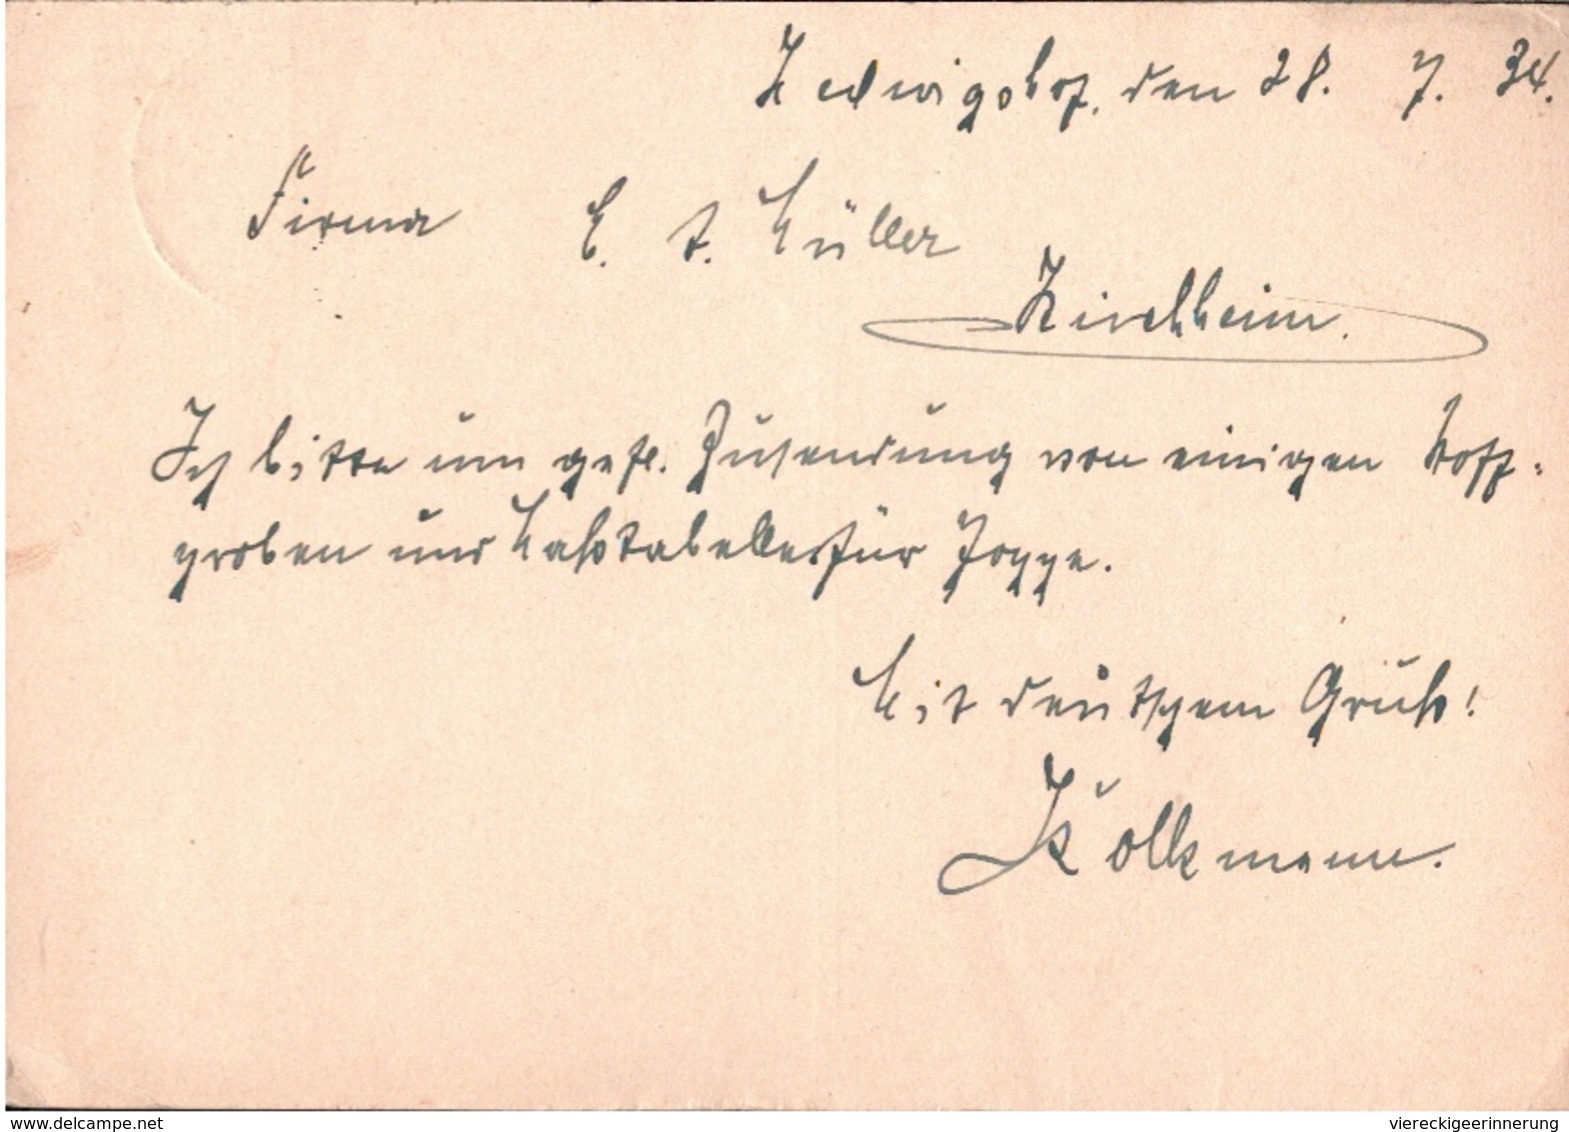 Ludwigshof, den 28. 7. 34.
Firma E. A. Müller
Kirchheim.
Ich bitte um gefl. Zusendung von einigen Stoff-
proben und Maßtabelle für Joppe.
Mit deutschem Gruß!
Kölkmann.
delcampe.net
viereckigeerinnerung